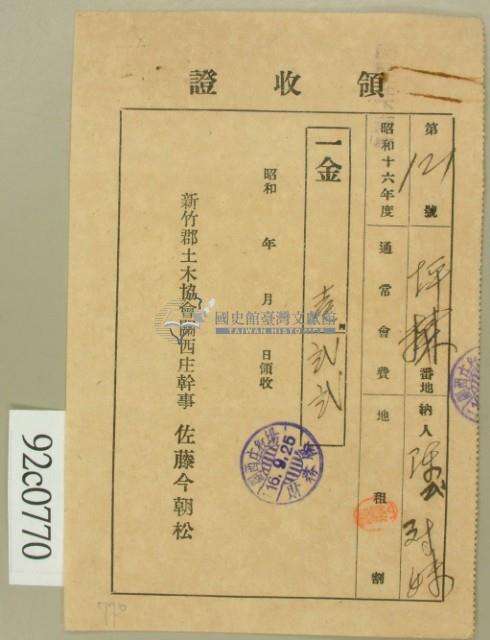 領收證
第121號
坪林番地納人
昭和十六年度通常會費地租割
一金
壱円弐弐
昭和年月日領收
新竹郡土木協會關西庄幹事佐藤今朝松
16.9.25
國史館臺灣文獻館
TAIWAN HISTORICA
92c0770
770